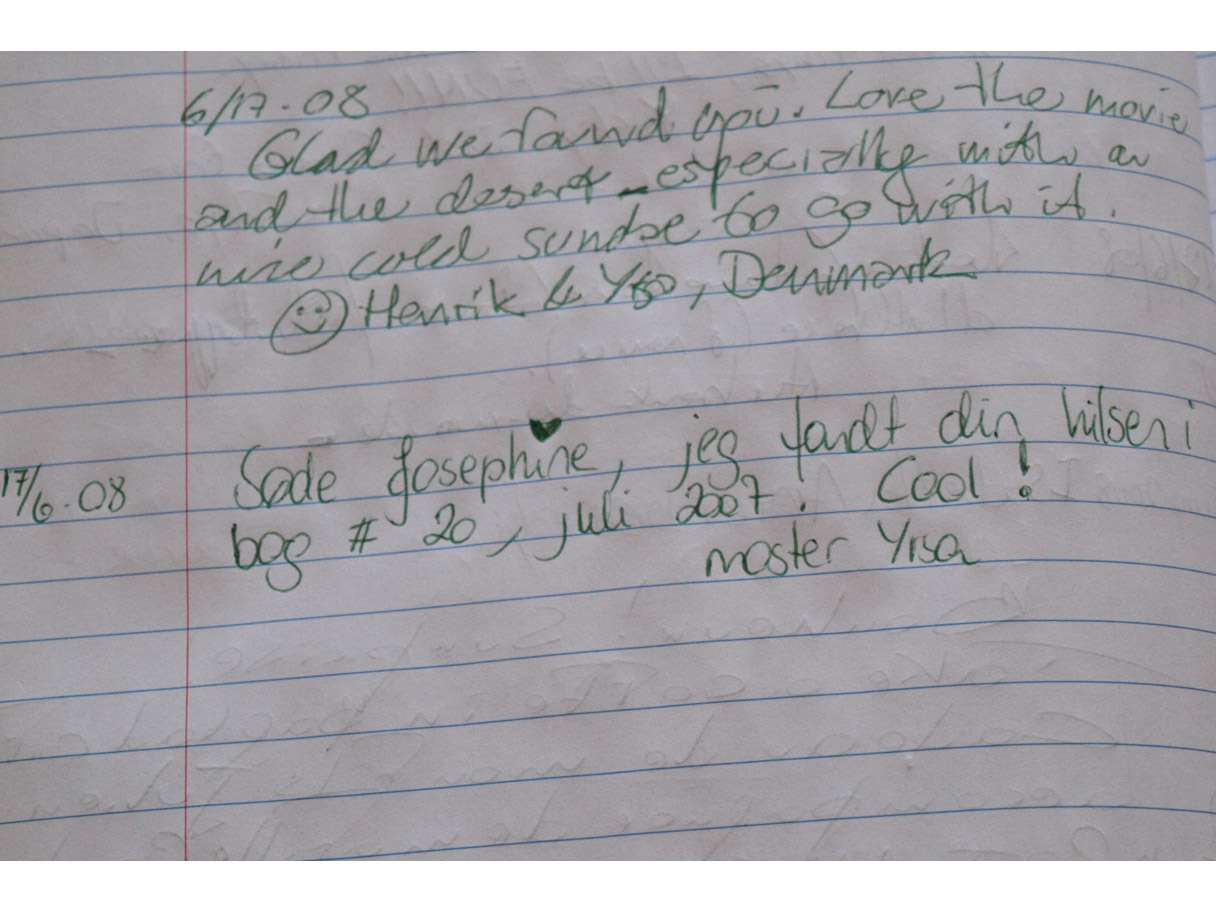 6/17.08
Glad we found you. Love the movie
and the desert - especially with a
nice cold sundae to go with it.
Henrik & Yrsa, Denmark
17/6.08
Søde Josephine, jeg fandt din hilsen i
bog # 20, juli 2007. Cool!
moster Yrsa